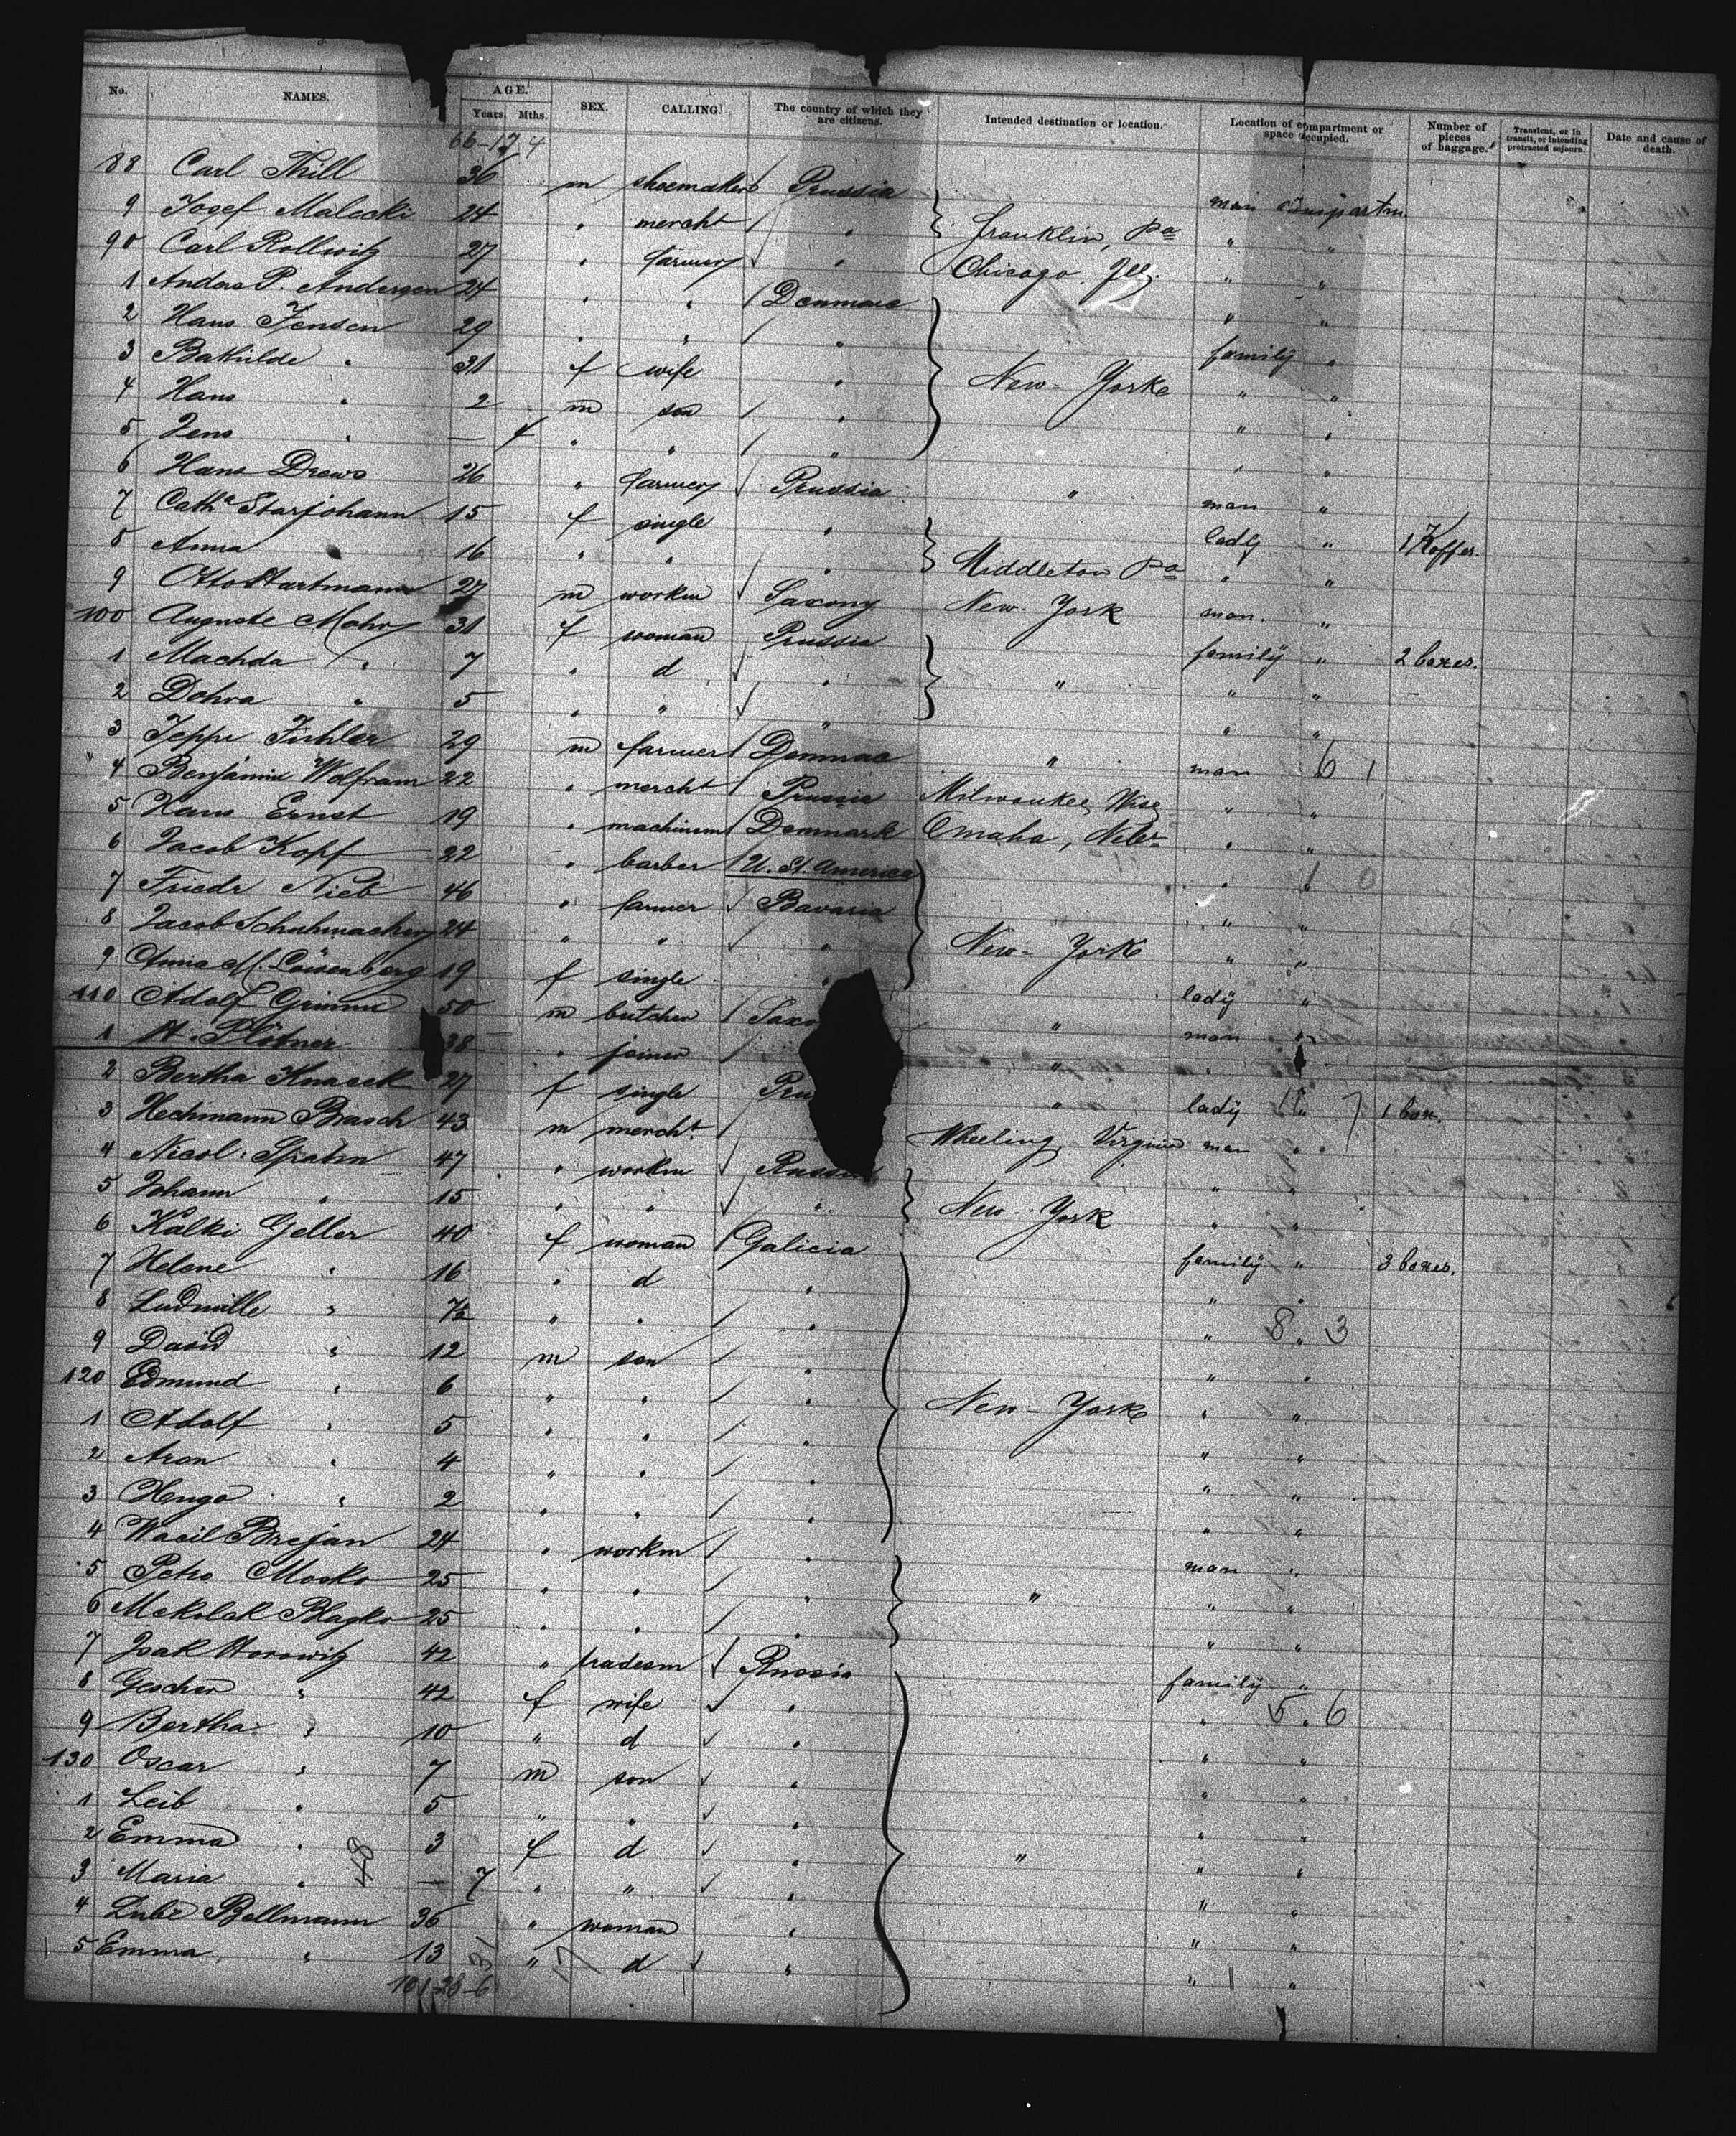 No. NAMES. AGE. Years. Mths. SEX. CALLING. The country of which they are citizens. Intended destination or location. Location of compartment or space occupied. Number of pieces of baggage. Transient, or in transit, or intending protracted sojourn. Date and cause of death.
66-17 4
88 Carl Thill 36 m shoemaker Prussia man compartm
9 Josef Malecki 24 " mercht " Franklin, Pa " "
90 Carl Rollwitz 27 " farmer " Chicago Ill. " "
1 Anders P. Andersen 24 " " Denmark " "
2 Hans Jensen 29 " " " family "
3 Bathilde " 31 f wife " New-York " "
4 Hans " 2 m son " " "
5 Jens " — 4 " " " " "
6 Hans Drews 26 " farmer Prussia " man "
7 Catha Starjohann 15 f single " lady " 1 Koffer.
8 Anna " 16 " " " Middleton Pa " "
9 Otto Hartmann 27 m workm Saxony New-York man. "
100 Auguste Mohr 31 f woman Prussia family " 2 boxes.
1 Machda " 7 " d " " " "
2 Dohra " 5 " " " " "
3 Jeppe 29 m farmer " man " 6 1
4 Benjamin Wolfram 22 " mercht Prussia Milwaukee, Wisc " "
5 Hans Ernst 19 " machinem Denmark Omaha, Nebr " "
6 Jacob Kopf 22 " barber U. St. America " " 1 0
7 Friedr Nieb 46 " farmer Bavaria " "
8 Jacob Schuhmacher 24 " " " New-York " "
9 Anna M. Loisenberg 19 f single " lady "
110 Adolf Grimm 50 m butcher Saxo " man "
1 H. Plötner 38 " joiner " " "
2 Bertha Knaack 27 f single Pru " lady " 1 7 1 box.
3 Hechmann Brasch 43 m mercht. Wheeling, Virginia man "
4 Nicol. Spahn 47 " workm Russia " "
5 Johann " 15 " " " New-York " "
6 Kalki Geller 40 f woman Galicia family " 3 boxes.
7 Helene " 16 " d " " "
8 Ludmille " 7½ " " " " " 8 3
9 David " 12 m son " " "
120 Edmund " 6 " " " New-York " "
1 Adolf " 5 " " " " "
2 Aron " 4 " " " " "
3 Hugo " 2 " " " " "
4 Wacil Brejan 24 " workm " man "
5 Petro Mosko 25 " " " " " "
6 Mekolak Blagko 25 " " " " "
7 Isak Horowitz 42 " tradesm Russia family "
8 Geschen " 42 f wife " " " 5 6
9 Bertha " 10 " d " " "
130 Oscar " 7 m son " " "
1 Leib " 5 " " " " "
2 Emma " 3 f d " " " "
3 Maria " — 7 " " " " "
4 Lube Bellmann 36 " woman " " "
5 Emma " 13 " d " " 1 "
48
31
17
101-28-6